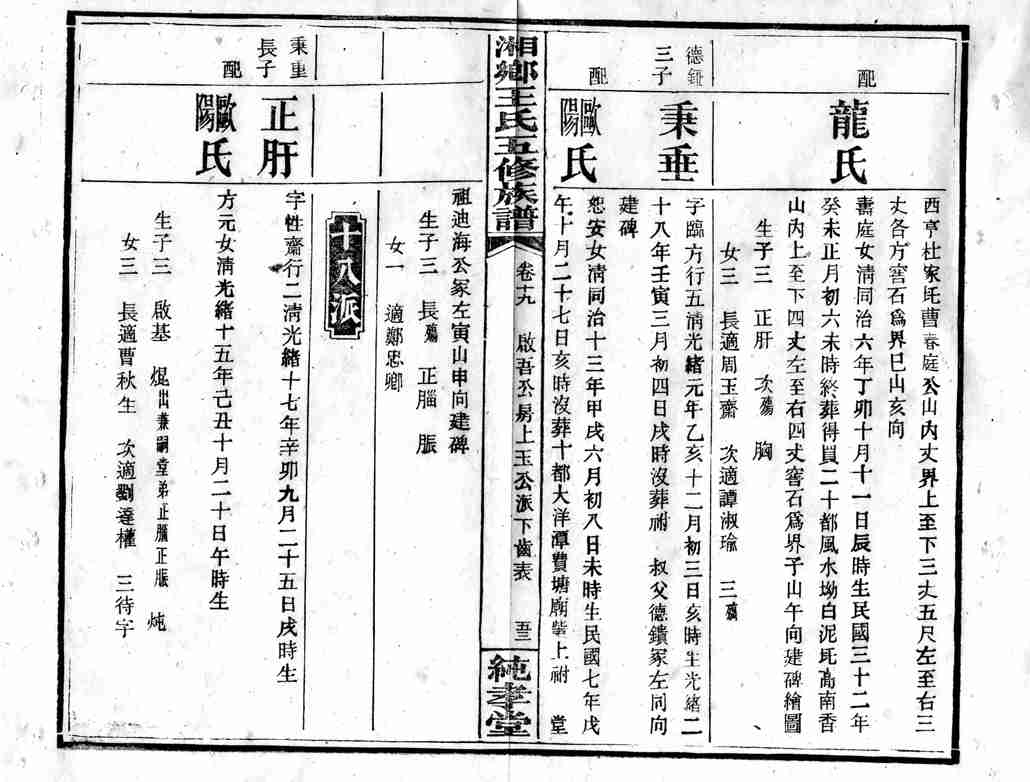 西亨杜家坉曹春庭公山內丈界上至下三丈五尺左至右三
丈各方窖石爲界巳山亥向
配
龍氏
壽庭女淸同治六年丁卯十月十一日辰時生民國三十二年
癸未正月初六未時終葬得買二十都風水坳白泥坉高南香
山內上至下四丈左至右四丈窖石爲界子山午向建碑繪圖
生子三 正肝 次殤 胸
女三 長適周玉齋 次適譚淑瑜 三殯
德鈺
三子
秉垂
字臨方行五淸光緖元年乙亥十二月初三日亥時生光緖二
十八年壬寅三月初四日戌時沒葬祔 叔父德鐨冢左同向
建碑
配
歐陽氏
恕安女淸同治十三年甲戌六月初八日未時生民國七年戊
午十月二十七日亥時沒葬十都大洋潭費塘廟 上祔 堂
湘鄉王氏五修族譜
卷十九 啟吾公房上玉公派下齒表 五三
純孝堂
祖迪海公冢左寅山申向建碑
生子三 長殤 正腦 脤
女一 適鄭忠鄉
十八派
秉重
長子
正肝
字性齋行二淸光緖十七年辛卯九月二十五日戌時生
配
歐陽氏
方元女淸光緖十五年己丑十月二十日午時生
生子三 啟基 焜出兼嗣堂弟正腦正脤 炖
女三 長適曹秋生 次適劉達權 三待字